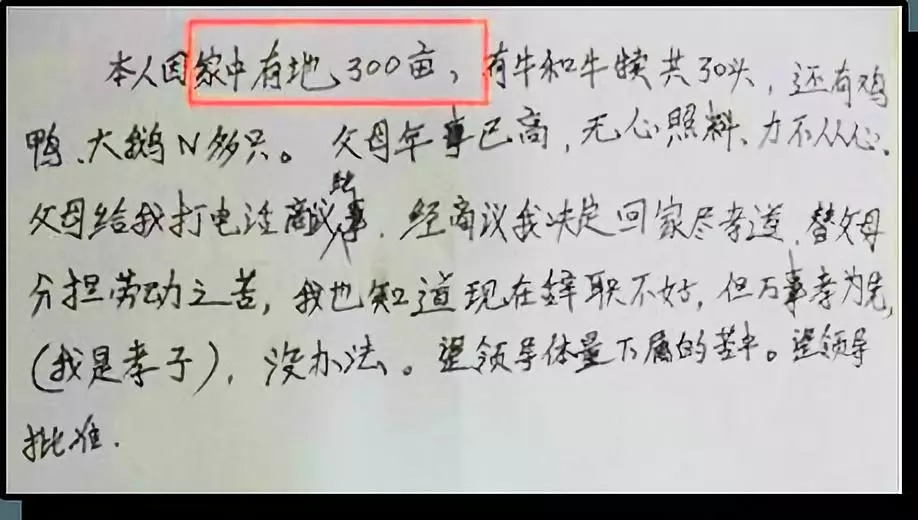 本人因家中有地300亩，有牛和牛犊共30头，还有鸡
鸭、大鹅N多只。父母年事已高，无心照料、力不从心、
父母给我打电话商议此事，经商议我决定回家尽孝道，替父母
分担劳动之苦，我也知道现在辞职不好，但万事孝为先，
（我是孝子），没办法。望领导体量下属的苦中。望领导
批准.